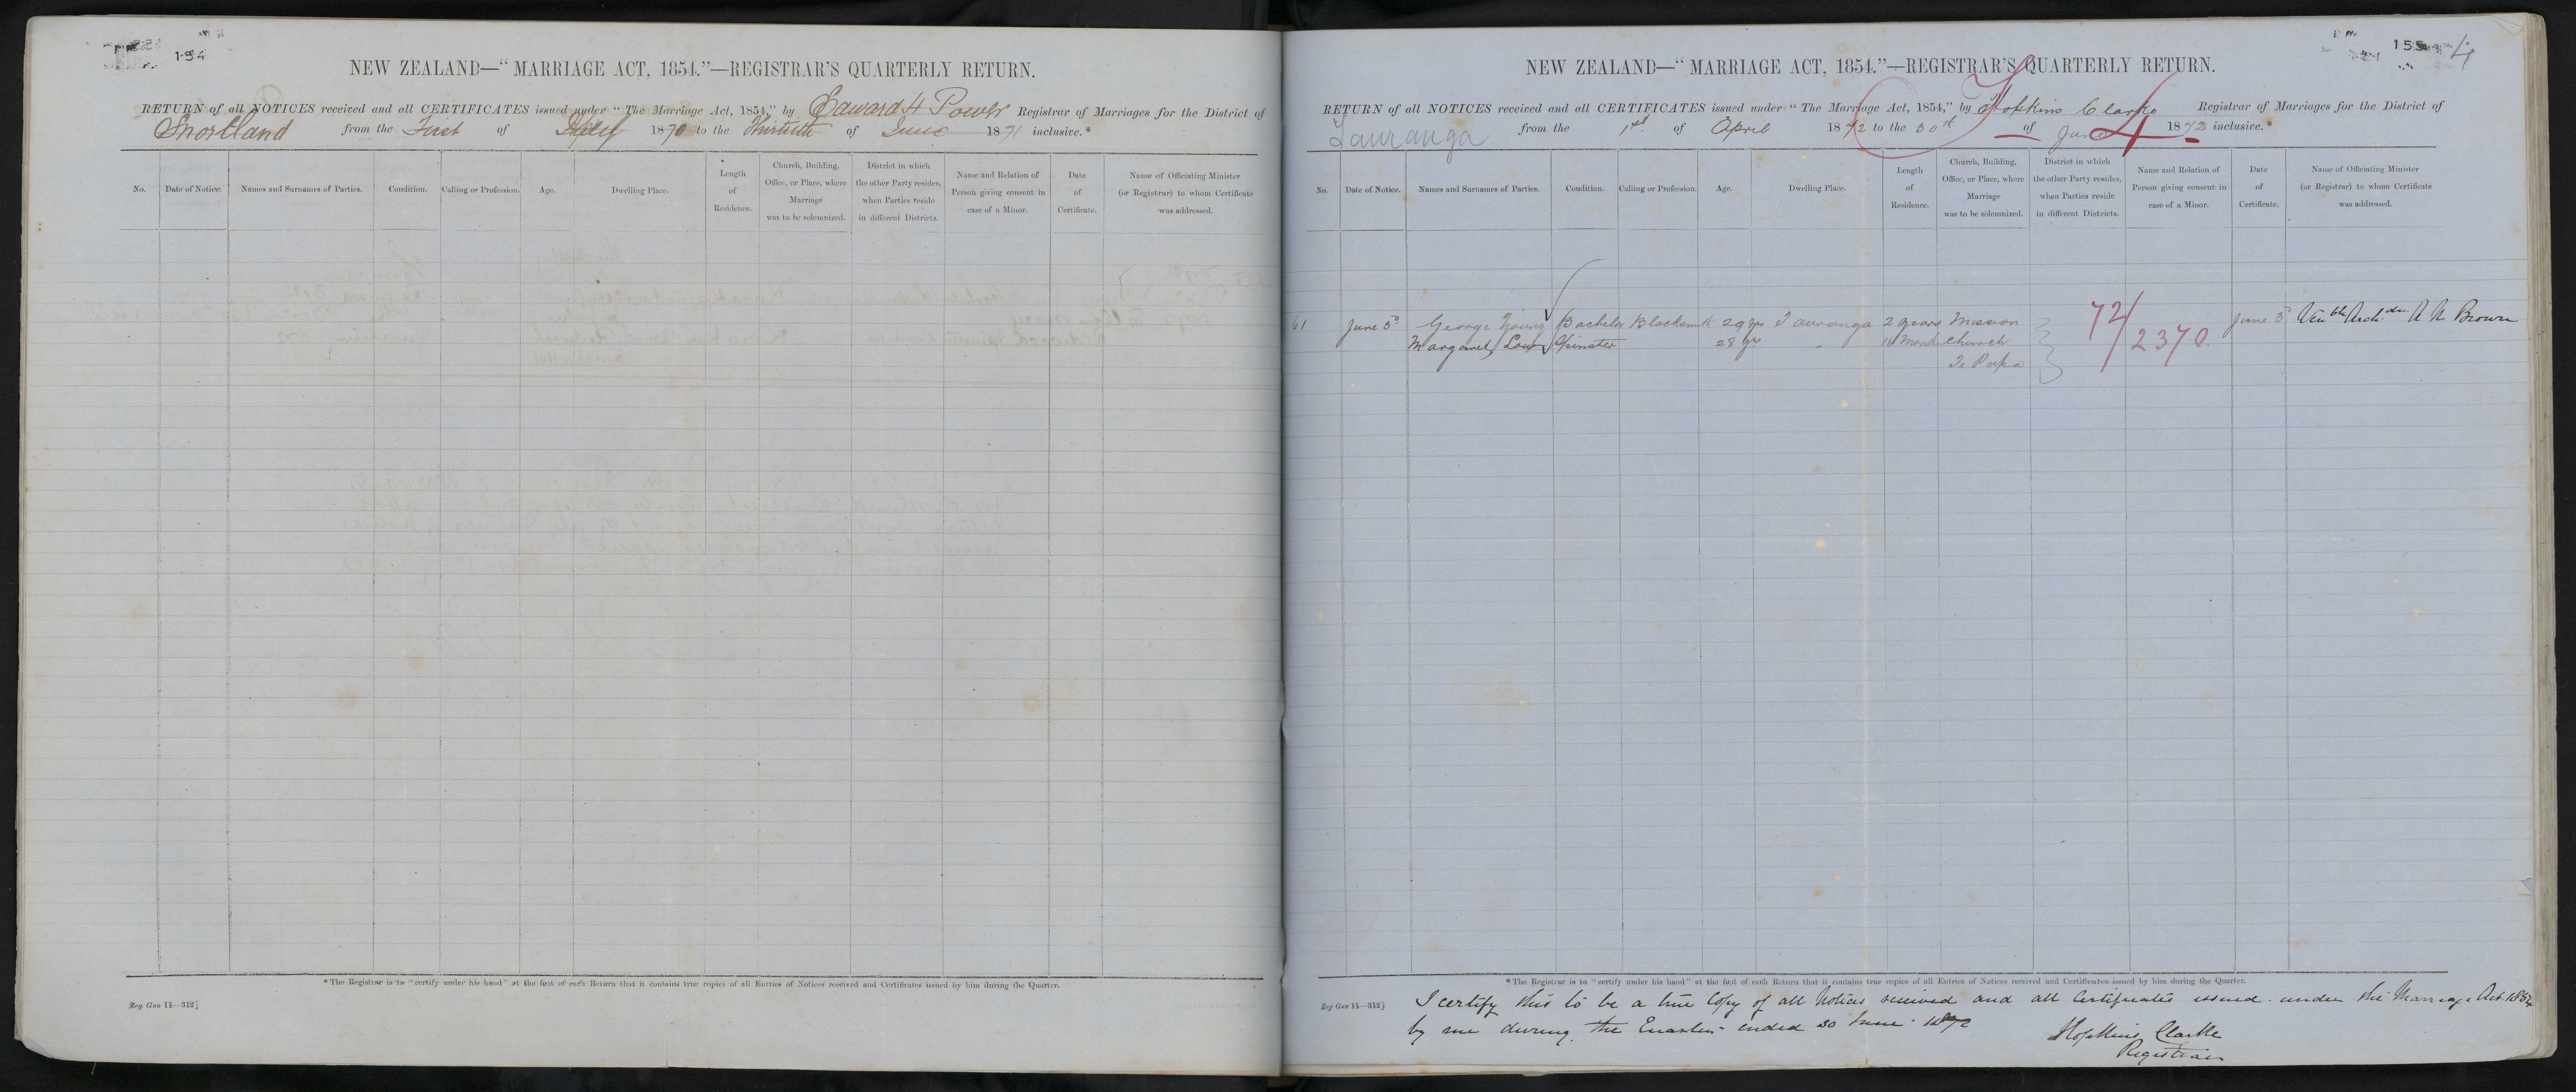 154
NEW ZEALAND—"MARRIAGE ACT, 1854."—REGISTRAR'S QUARTERLY RETURN.
RETURN of all NOTICES received and all CERTIFICATES issued under "The Marriage Act, 1854," by Edward H Power Registrar of Marriages for the District of
Shortland from the First of July 1870 to the Thirtieth of June 1871 inclusive.*
No.
Date of Notice.
Names and Surnames of Parties.
Condition.
Calling or Profession.
Age.
Dwelling Place.
Length
of
Residence.
Church, Building,
Office, or Place, where
Marriage
was to be solemnized.
District in which
the other Party resides,
when Parties reside
in different Districts.
Name and Relation of
Person giving consent in
case of a Minor.
Date
of
Certificate.
Name of Officiating Minister
(or Registrar) to whom Certificate
was addressed.
*The Registrar is to "certify under his hand" at the foot of each Return that it contains true copies of all Entries of Notices received and Certificates issued by him during the Quarter.
Reg Gen 11—312]
155 4
NEW ZEALAND—"MARRIAGE ACT, 1854."—REGISTRAR'S QUARTERLY RETURN.
RETURN of all NOTICES received and all CERTIFICATES issued under "The Marriage Act, 1854," by Hopkins Clarke Registrar of Marriages for the District of
Tauranga from the 1st of April 1872 to the 30th of June 1872 inclusive.*
No.
Date of Notice.
Names and Surnames of Parties.
Condition.
Calling or Profession.
Age.
Dwelling Place.
Length
of
Residence.
Church, Building,
Office, or Place, where
Marriage
was to be solemnized.
District in which
the other Party resides,
when Parties reside
in different Districts.
Name and Relation of
Person giving consent in
case of a Minor.
Date
of
Certificate.
Name of Officiating Minister
(or Registrar) to whom Certificate
was addressed.
61 June 3d George Young Bachelor Blacksmith 29 yrs Tauranga 2 years Mission 72/2370 June 3d Venble Archden A N Brown
Margaret Spinster 28 yrs " Months Church
Te Papa
*The Registrar is to "certify under his hand" at the foot of each Return that it contains true copies of all Entries of Notices received and Certificates issued by him during the Quarter.
Reg Gen 11—312]
I certify this to be a true Copy of all Notices received and all Certificates issued under the Marriage Act 1854
by me during the Quarter ended 30 June 1872
Hopkins Clarke
Registrar